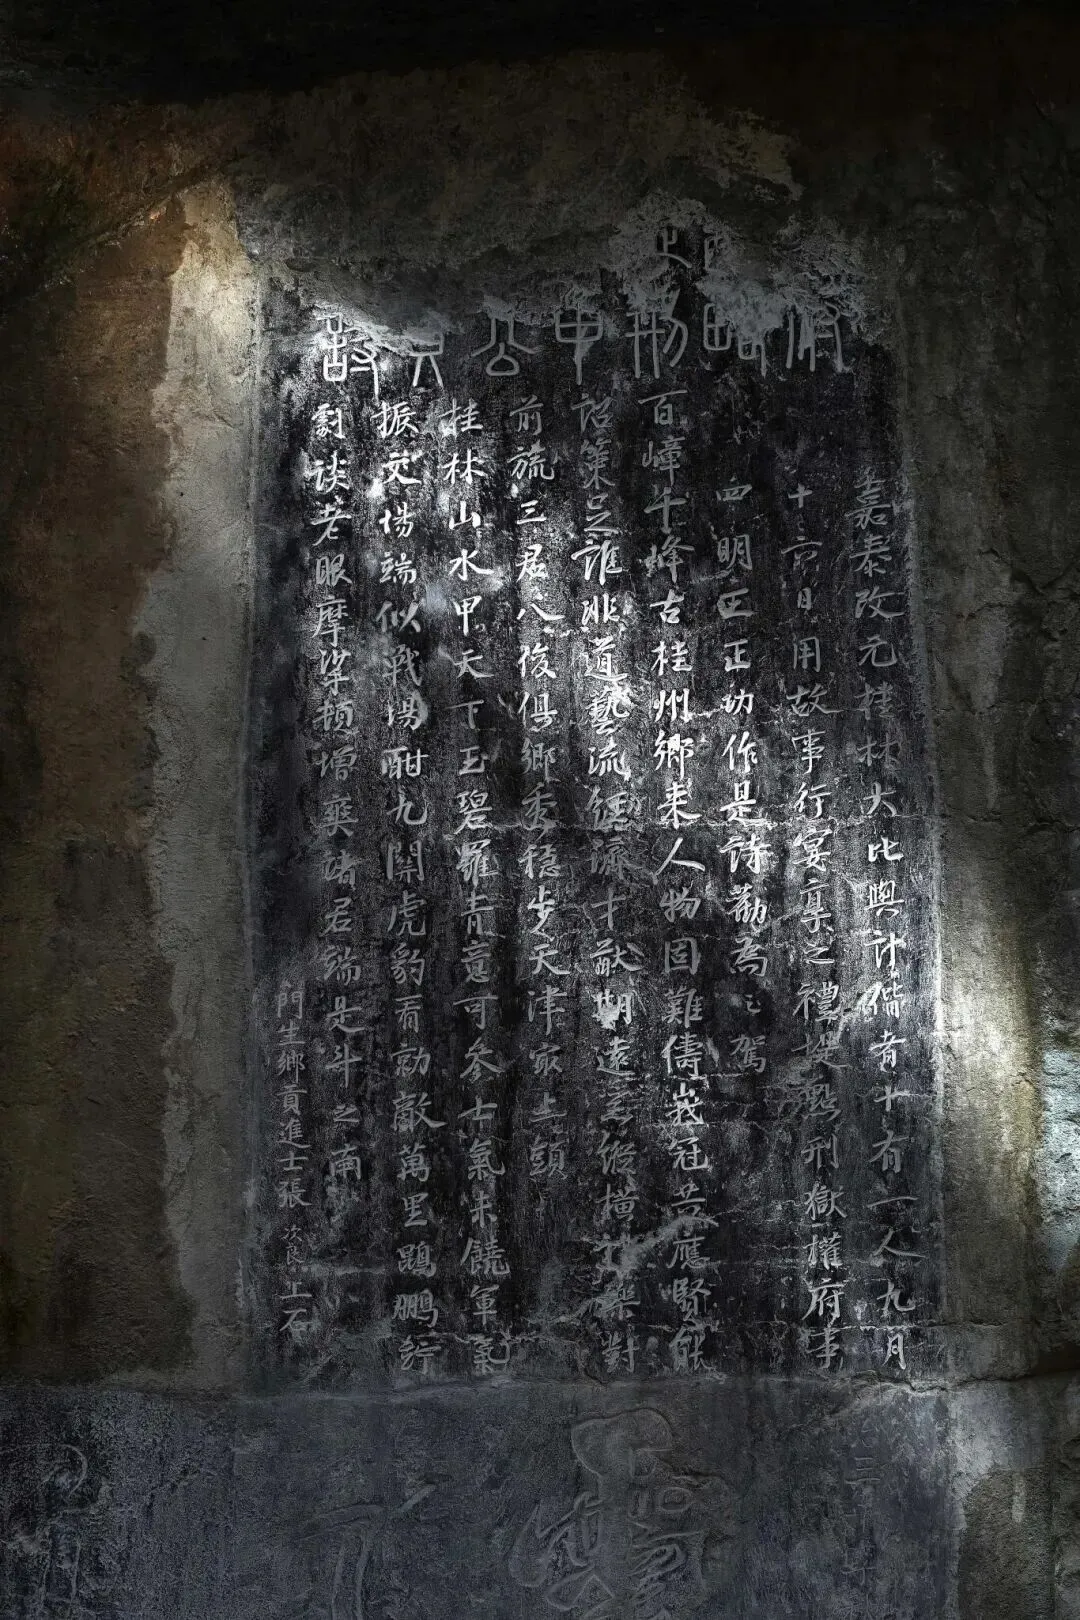 刑
公
嘉泰改元桂林大比與計偕者十有一人九月
十六日用故事行宴享之禮提點刑獄權府事
四明王正功作是詩勸為之駕
百嶂千峰古桂州鄉來人物固難儔峩冠共應賢能
詔策足誰非道藝流經濟才猷期遠縱橫禮樂對
前旒三君八俊俱鄉秀穩步天津㝡上頭
桂林山水甲天下玉碧羅青意可參士氣未饒軍氣
振文場端似戰場酣九關虎豹看勍敵萬里鵾鵬佇
劇談老眼摩挲頓增爽諸君端是斗之南
門生鄉貢進士張次良上石